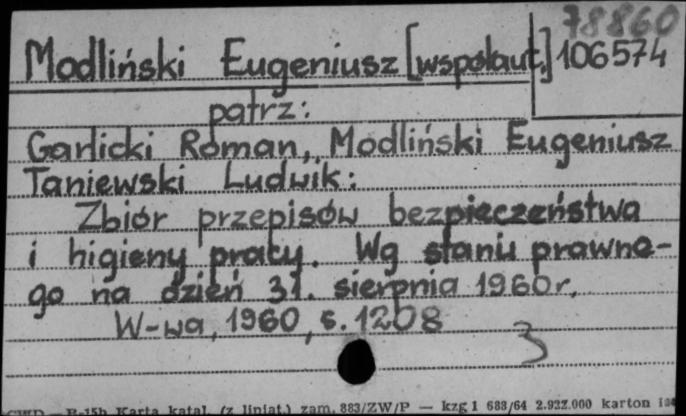 78860
Modliński Eugeniusz [współaut.] 106574
patrz:
Garlicki Roman, Modliński Eugeniusz
Taniewski Ludwik:
Zbiór przepisów bezpieczeństwa
i higieny pracy. Wg stanu prawne-
go na dzień 31. sierpnia 1960r.
W-wa, 1960, s. 1208
3
B-15b Karta katal. (z liniat.) zam. 883/ZW/P — kzg 1 683/64 2.922.000 karton